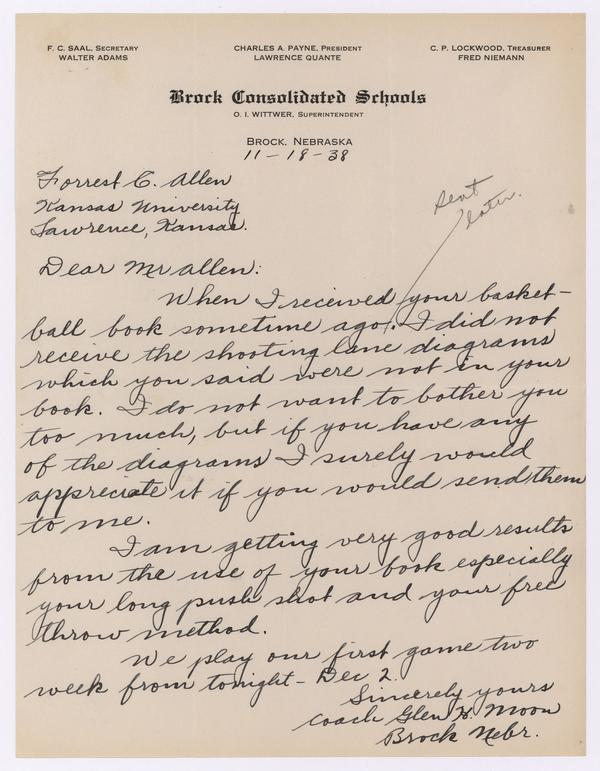 F. C. SAAL, SECRETARY
WALTER ADAMS
CHARLES A. PAYNE, PRESIDENT
LAWRENCE QUANTE
C. P. LOCKWOOD, TREASURER
FRED NIEMANN
Brock Consolidated Schools
O. I. WITTWER, SUPERINTENDENT
BROCK, NEBRASKA
11-18-38
Forrest C. Allen
Kansas University
Lawrence, Kansas.
sent
later.
Dear Mr Allen:
When I received your basket-
ball book sometime ago, I did not
receive the shooting lane diagrams
which you said were not in your
book. I do not want to bother you
too much, but if you have any
of the diagrams I surely would
appreciate it if you would send them
to me.
I am getting very good results
from the use of your book especially
your long push shot and your free
throw method.
We play our first game two
week from tonight - Dec 2.
Sincerely yours
Coach Glen H. Moon
Brock Nebr.